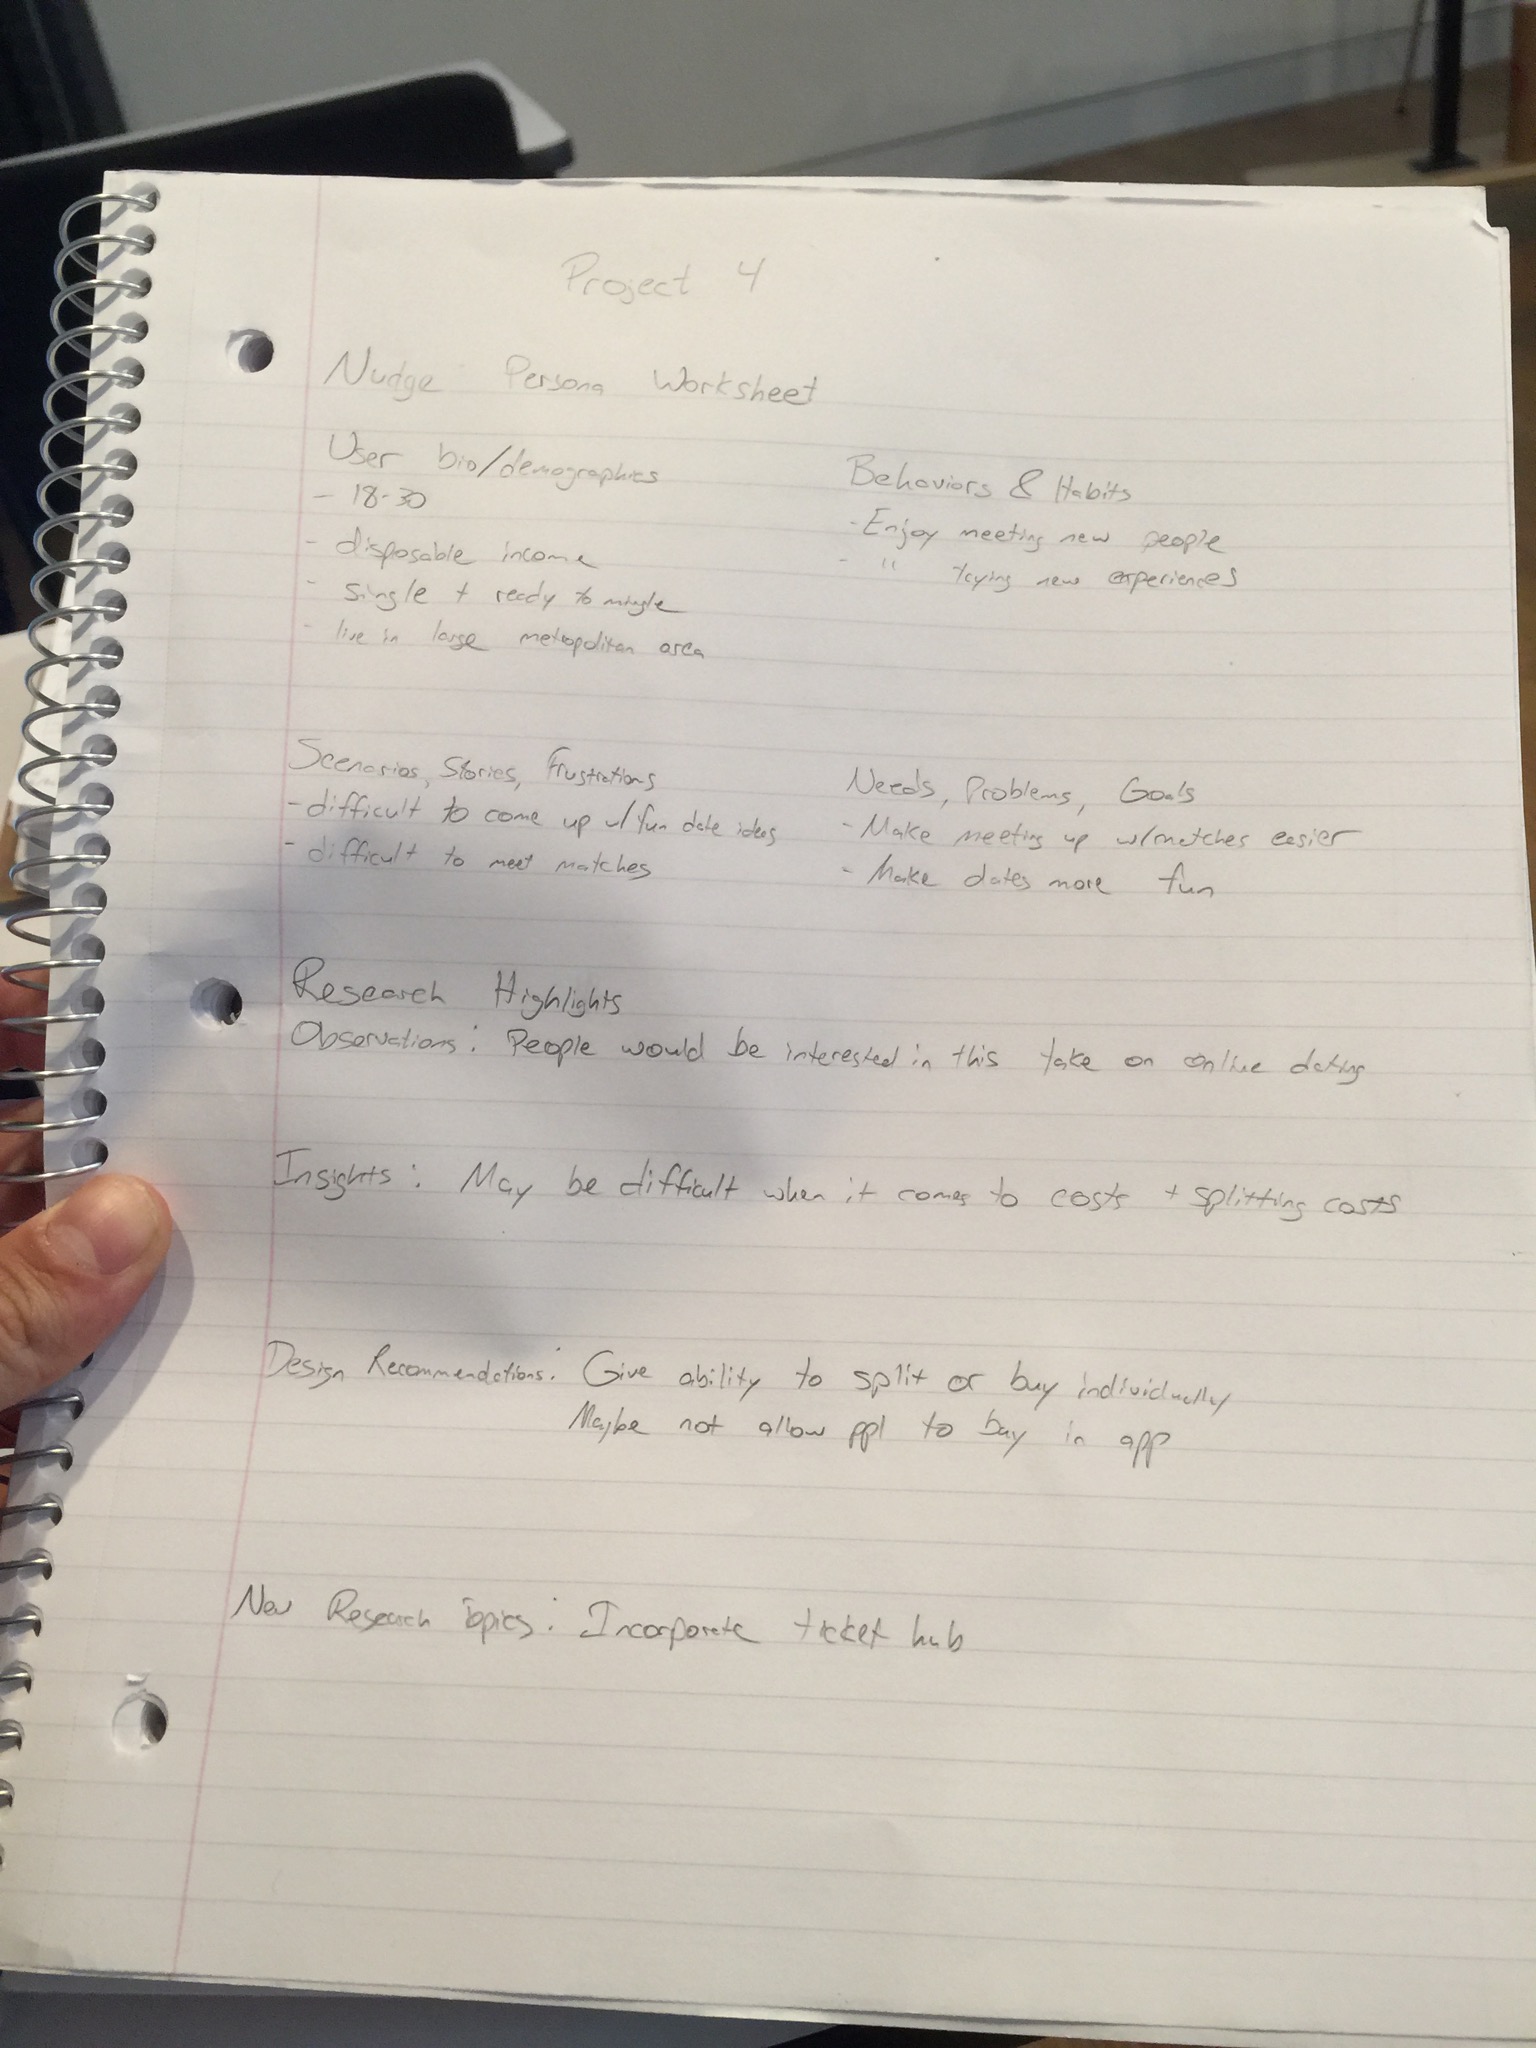 Project 4
Nudge Persona Worksheet
User bio/demographics
- 18-30
- disposable income
- single + ready to mingle
- live in large metropolitan area
Behaviors & Habits
- Enjoy meeting new people
- " trying new experiences
Scenarios, Stories, Frustrations
- difficult to come up w/ fun date ideas
- difficult to meet matches
Needs, Problems, Goals
- Make meeting up w/matches easier
- Make dates more fun
Research Highlights
Observations: People would be interested in this take on online dating
Insights: May be difficult when it comes to costs + splitting costs
Design Recommendations: Give ability to split or buy individually
Maybe not allow ppl to buy in app
New Research Topics: Incorporate ticket hub